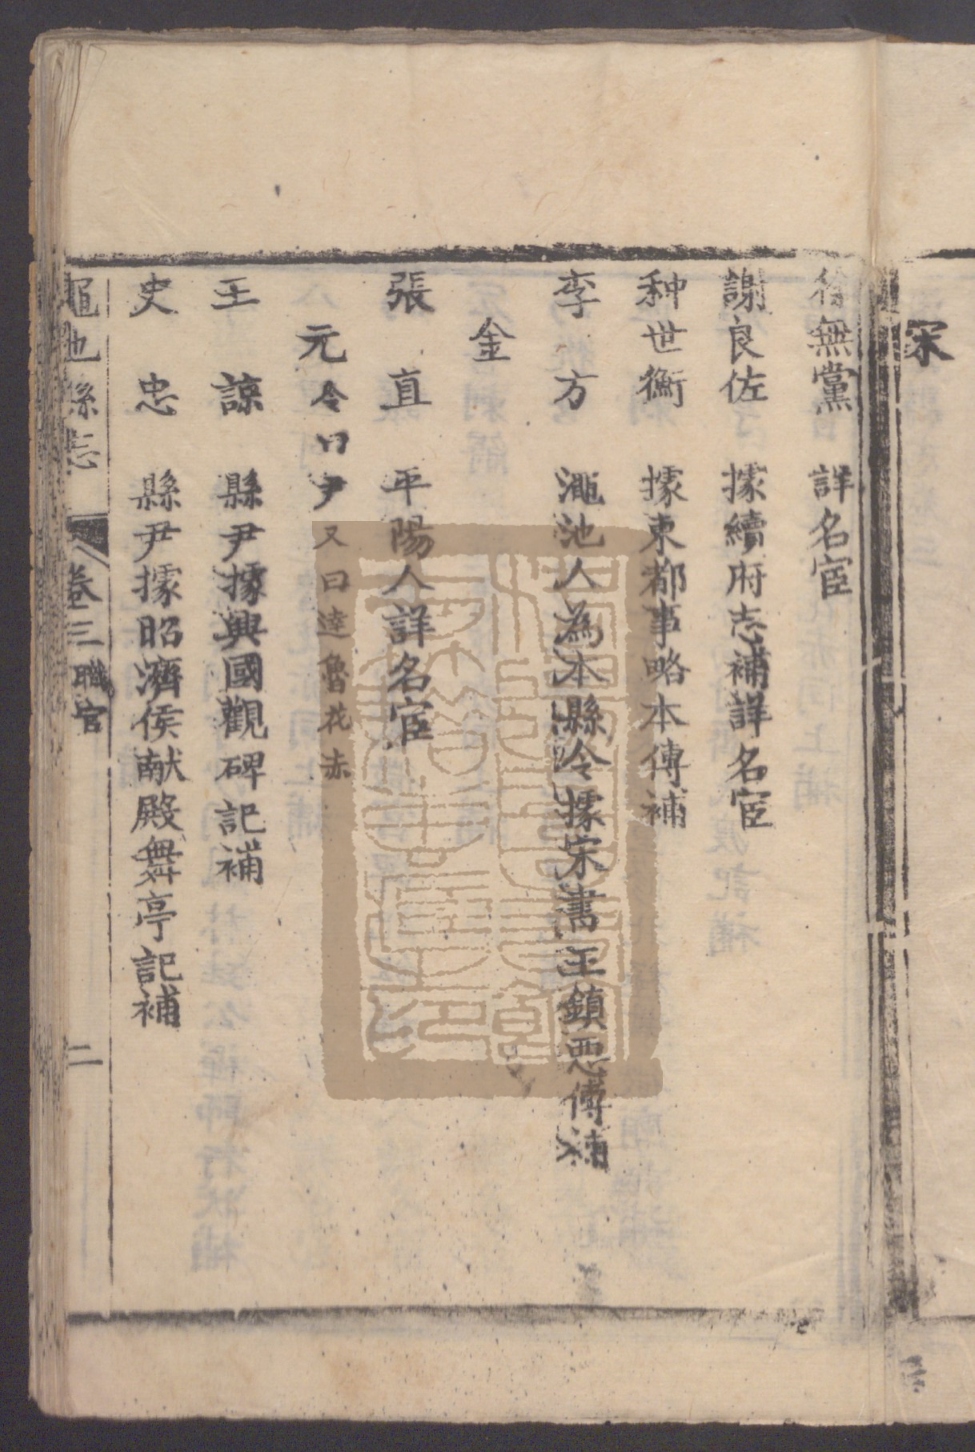 宋
徐無黨 詳名宦
謝良佐 據續府志補詳名宦
种世衡 據東都事略本傳補
李方 澠池人為本縣令據宋書王鎮惡傳補
金
張直 平陽人詳名宦
元令曰尹又曰達魯花赤
王諒 縣尹據興國觀碑記補
史忠 縣尹據昭濟侯献殿舞亭記補
澠池縣志 卷三 職官 二